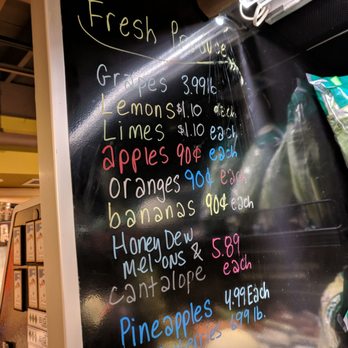 Fresh Produce
Grapes 3.99 lb.
Lemons $1.10 each
Limes $1.10 each
apples 90¢ each
oranges 90¢ each
bananas 90¢ each
Honey Dew
Melons & 5.89
cantalope each
Pineapples 4.99 Each
6.99 lb.